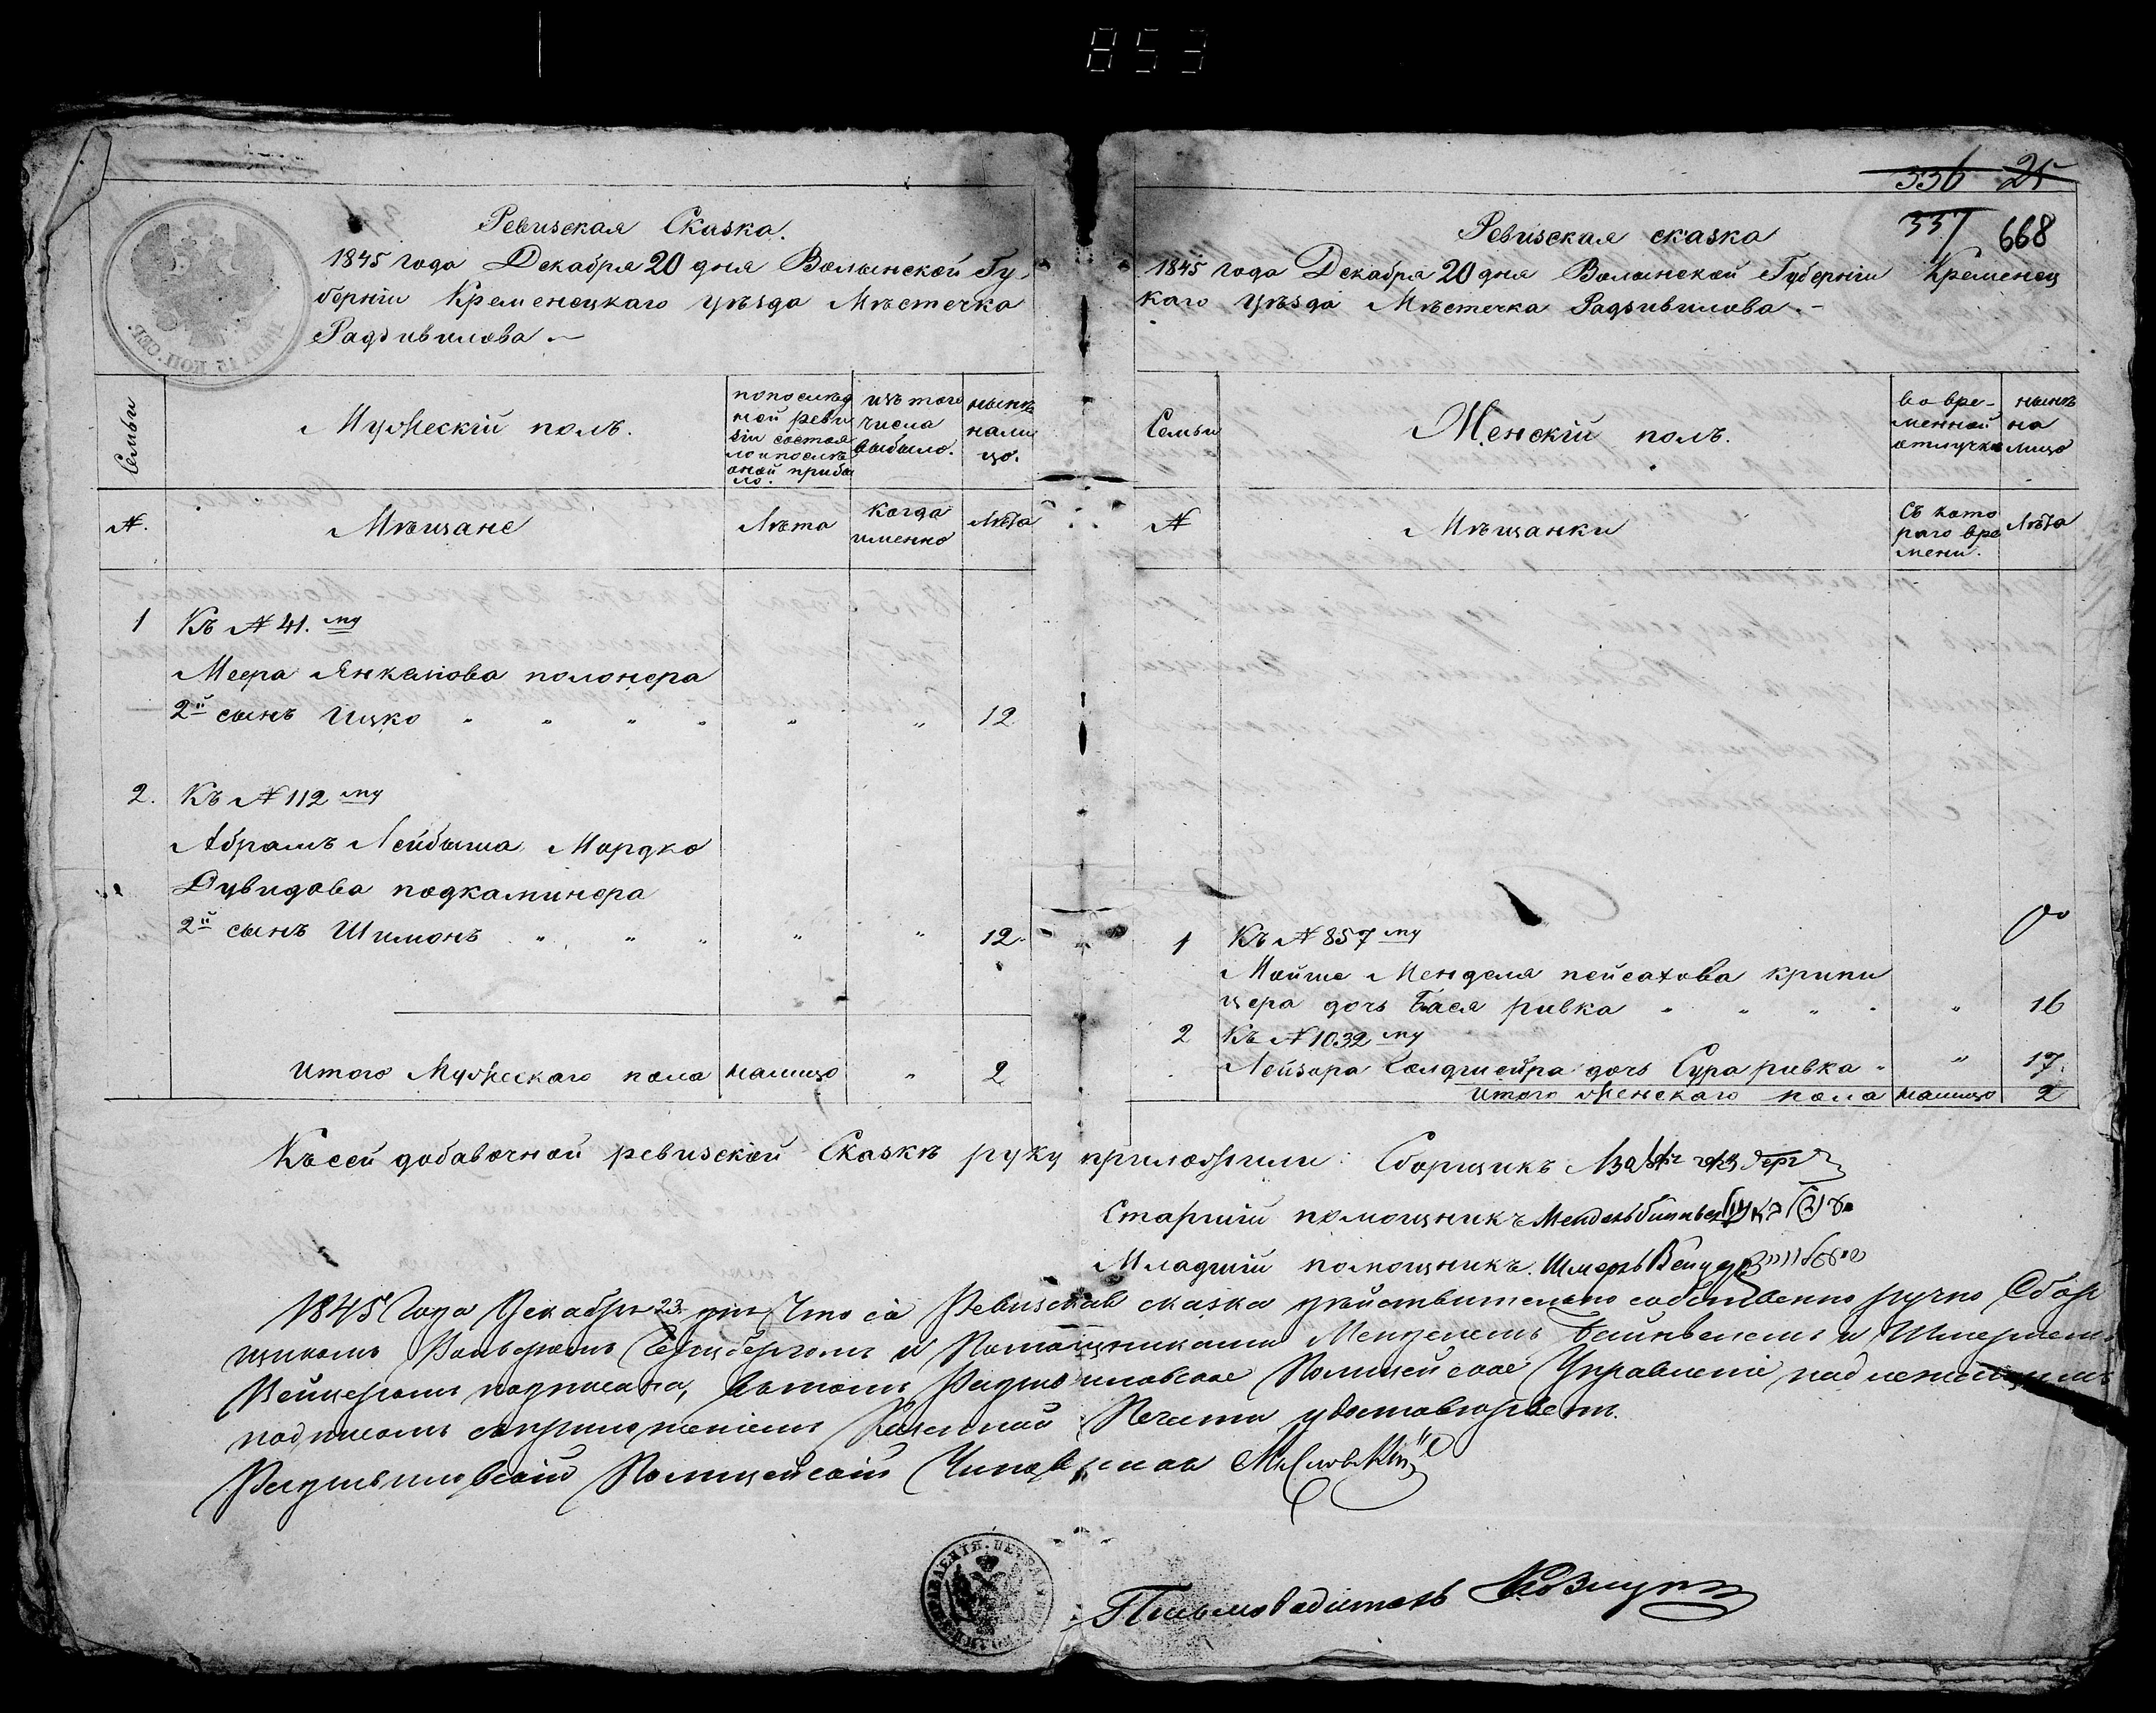 853
336 25
337 668
Ревизская Сказка.
1845 года Декабря 20 дня Волынской Гу-
берніи Кременецкаго уѣзда Мѣстечка
Радзивилова. —
Семьи
Мужескій полъ.
по послѣд
ней реви
зіи состоя
ло и послѣ
оной прибы
ло.
изъ того
числа
выбыло.
нынѣ
нали
цо.
№.
Мѣщане
Лѣта
когда
именно
Лѣта
1 Къ № 41.му
Меера Янкелова полонера
2й сынъ Ицко " " " " " " 12
2. Къ № 112 му
Абрамъ Лейбыша Мордко
Дувидова подкаминера
2й сынъ Шимонъ " " " " " 12.
Итого Мужескаго пола налицо " 2
Ревизская сказка
1845 года Декабря 20 дня Волынской Губерніи Кременец
каго уѣзда Мѣстечка Радзивилова. —
Семьи
Женскій полъ.
во вре-
менной
отлучкѣ
нынѣ
на
лицо
№
Мѣщанки
Съ кото
раго вре
мени.
Лѣта
1 Къ № 857 му
Мойше Менделя пейсахова крипи
цера дочь Бася ривка " " " " " 16
2 Къ № 1032 му
Лейзора Голдшейра дочь Сура ривка " " 17.
Итого женскаго пола налицо 2
Къ сей добавочной ревизской Сказкѣ руку приложили: Сборщикъ
Старшій помощникъ Мендель
Младшій помощникъ. Шмерль Вейцер
1845 Года Декабря 23 дня, Что сія Ревизская сказка дѣйствительно собственно ручно Сбор
щикомъ и Помощниками Менделемъ и Шмерлемъ
Вейцеромъ подписана, въ томъ Радзивиловское Полицейское Управленіе надлежащимъ
подписомъ съ приложеніемъ казенной Печати удостовѣряетъ.
Радзивиловскій Полицейскій Чиновникъ
Письмоводитель